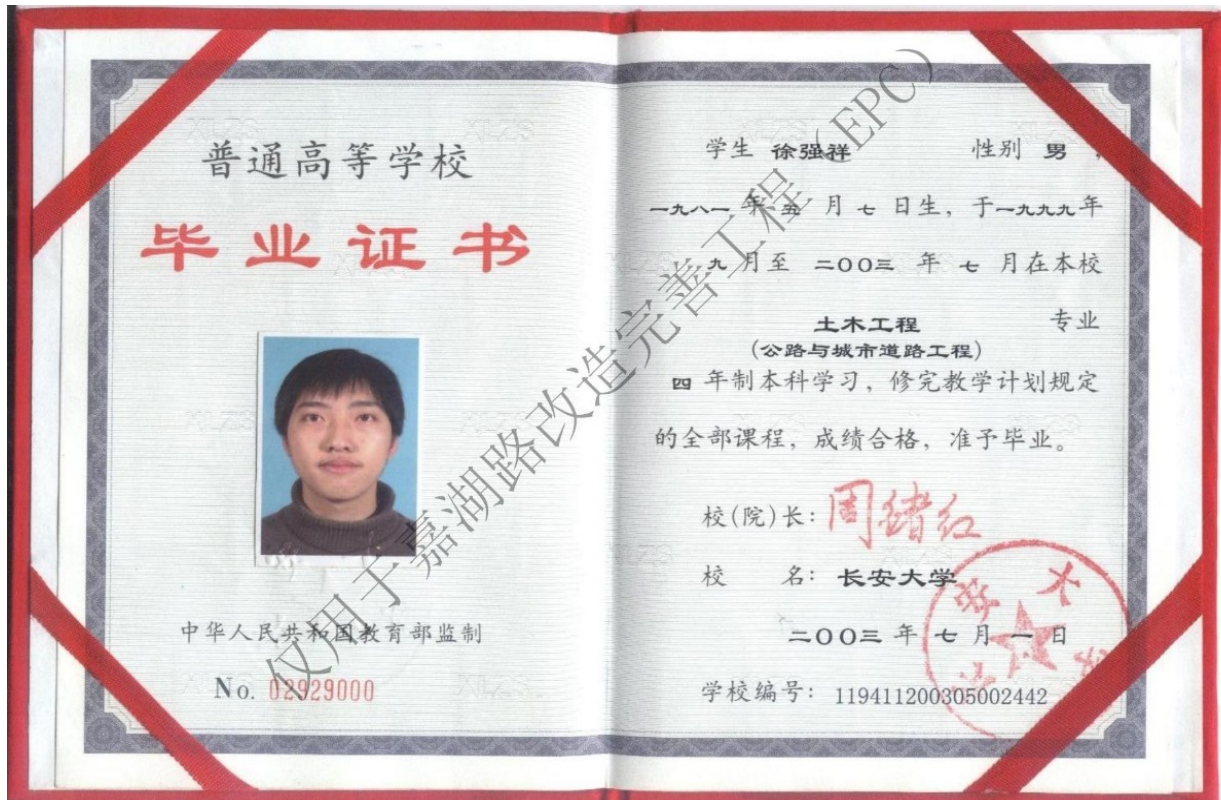 普通高等学校
毕业证书
中华人民共和国教育部监制
No. 02929000
学生 徐强祥 性别 男,
一九八一 年 五 月 七 日生, 于一九九九年
九 月至 二〇〇三 年 七 月在本校
土木工程 专业
(公路与城市道路工程)
四 年制本科学习, 修完教学计划规定
的全部课程, 成绩合格, 准予毕业。
校(院)长: 周绪红
校 名: 长安大学
二〇〇三 年 七 月 一 日
学校编号: 119411200305002442
仅用于嘉湖路改造完善工程(EPC)